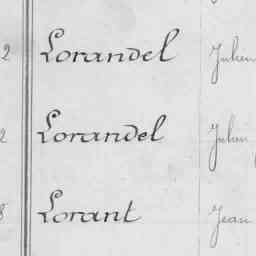 2 Lorandel Julien
2 Lorandel Julien
8 Lorant Jean